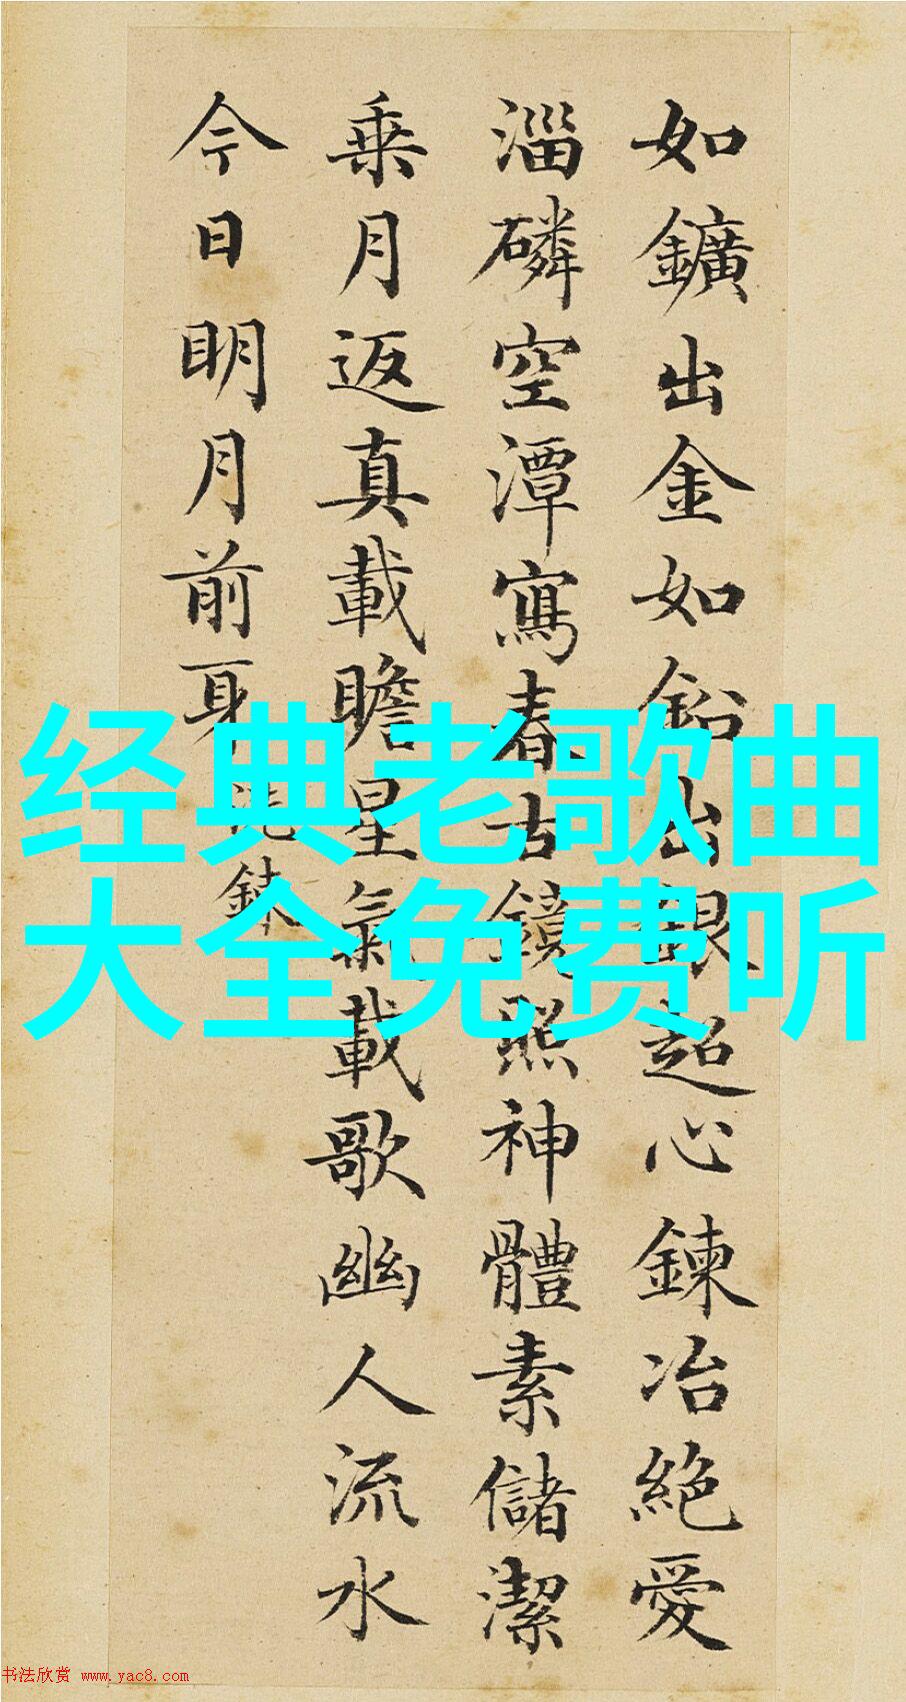 如鑛出金如鉛出銀超心鍊冶絕愛
淄磷空潭寫春古鏡照神體素儲潔
乗月返真載瞻星氣載歌幽人流水
今日明月前身洗鍊
经典老歌曲
大全免费听
书法欣赏 www.yac8.com